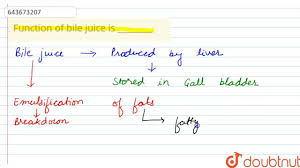 643673207
Function of bile juice is
Bile juice → Produced by liver
↓ ↓
Stored in Gall bladder
Emulsification of fats
↓ ↳ fatty
Breakdown
doubtnut